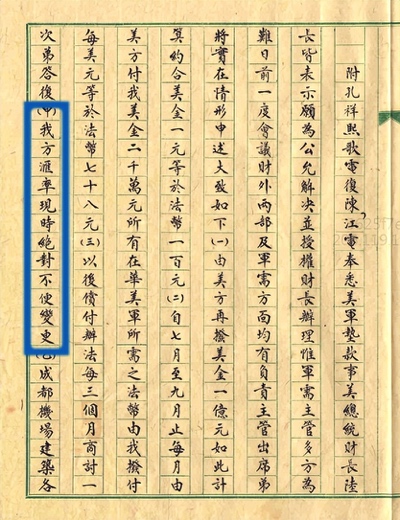 附孔祥熙歌電復陳江電奉悉美軍墊款事美總統財長陸
長皆表示願為公允解決並授權財長辦理惟軍需主管多方為
難日前一度會議財外兩部及軍需方面均有負責主管出席弟
將實在情形申述大致如下(一)由美方再撥美金一億元如此計
算約合美金一元等於法幣一百元(二)自七月至九月止每月由
美方付我美金二千萬元所有在華美軍所需之法幣由我撥付
每美元等於法幣七十八元(三)以後償付辦法每三個月商討一
次弟答復(甲)我方滙率現時絕對不便變更(乙)成都機場建築各